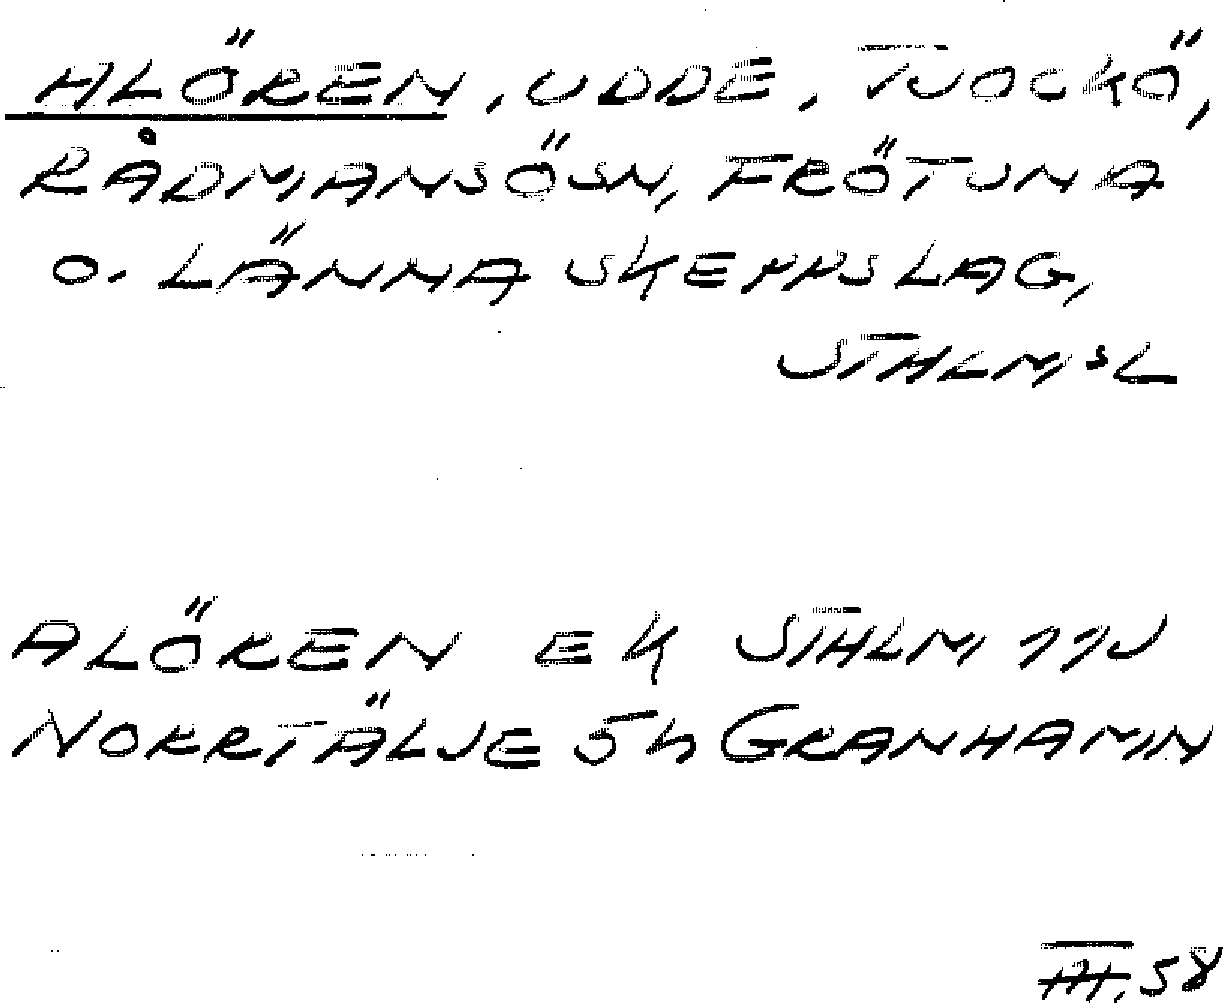 ALÖREN, UDDE, TJOCKÖ,
RÅDMANSÖ SN, FRÖTUNA
O. LÄNNA SKEPPSLAG,
STHLMS L
ALÖREN EK STHLM 11J
NORRTÄLJE 5h GRANHAMN
58